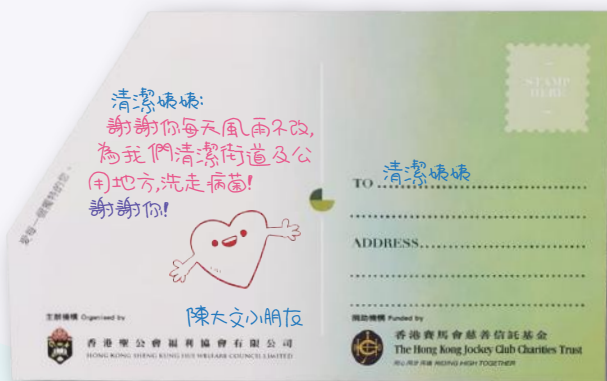 清潔姨姨:
謝謝你每天風雨不改,
為我們清潔街道及公
用地方,洗走病菌!
謝謝你!
陳大文小朋友
愛每一個獨特的您。
主辦機構 Organised by
香港聖公會福利協會有限公司
HONG KONG SHENG KUNG HUI WELFARE COUNCIL LIMITED
STAMP
HERE
TO 清潔姨姨
ADDRESS
捐助機構 Funded by
香港賽馬會慈善信託基金
The Hong Kong Jockey Club Charities Trust
RIDING HIGH TOGETHER